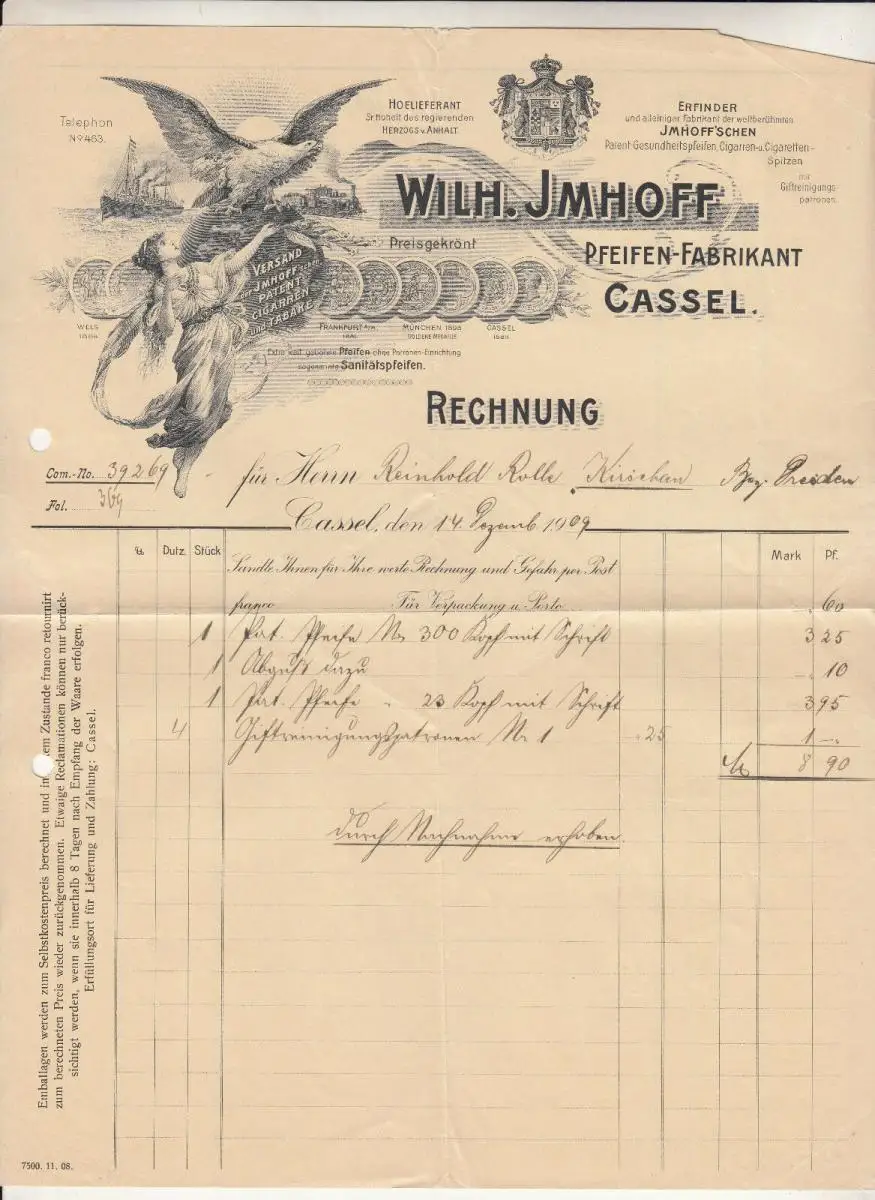 Telephon
No 463.
HOFLIEFERANT
Sr Hoheit des regierenden
HERZOGS v. ANHALT.
ERFINDER
und alleiniger Fabrikant der weltberühmten
JMHOFF'SCHEN
Patent-Gesundheitspfeifen, Cigarren-u. Cigaretten-
Spitzen
mit
Giftreinigungs-
patronen.
WILH. JMHOFF
Preisgekrönt
PFEIFEN-FABRIKANT
CASSEL.
VERSAND
der
JMHOFF'schen
PATENT
CIGARREN
und TABAKE
WELS
FRANKFURT a/M.
MÜNCHEN 1898
GOLDENE MEDAILLE
CASSEL
Extra weit gebohrte Pfeifen ohne Patronen-Einrichtung
sogenannte Sanitätspfeifen.
RECHNUNG
Com.-No. 39269
Fol. 369
für Herrn Reinhold Rolle Kirschau Bez. Dresden
Cassel, den 14. Dezemb. 1909
Dutz. Stück Mark Pf.
Sandte Ihnen für Ihre werte Rechnung und Gefahr per Post
franco Für Verpackung u. Porto 60
1 Pat. Pfeife No 300 Kopf mit Schrift 3 25
1 Abguß dazu 10
1 Pat. Pfeife " 23 Kopf mit Schrift 3 95
4 Giftreinigungspatronen No 1 25 1 —
8 90
durch Nachnahme erhoben.
Emballagen werden zum Selbstkostenpreis berechnet und in Zustande franco retournirt
zum berechneten Preis wieder zurückgenommen. Etwaige Reclamationen können nur berück-
sichtigt werden, wenn sie innerhalb 8 Tagen nach Empfang der Waare erfolgen.
Erfüllungsort für Lieferung und Zahlung: Cassel.
7500. 11. 08.